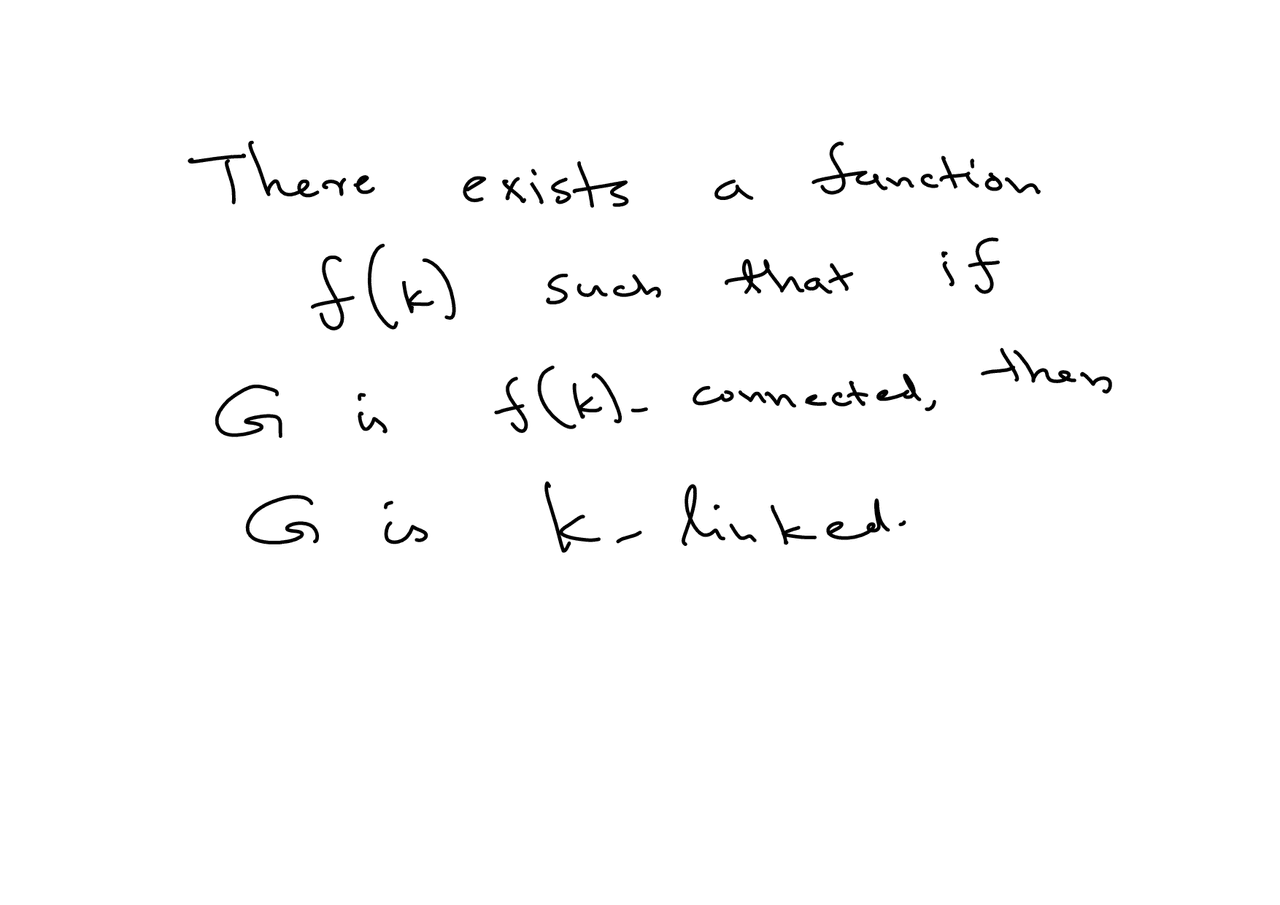 There exists a function
f(k) such that if
G is f(k)- connected, then
G is k- linked.